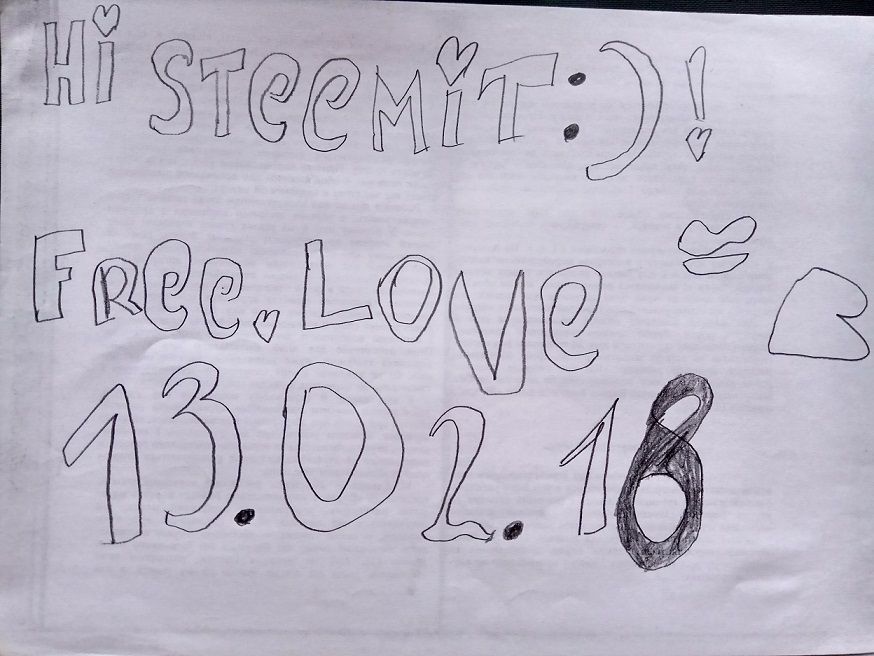 Hi STeeMiT:)!
FRee.LOVe
13.02.18